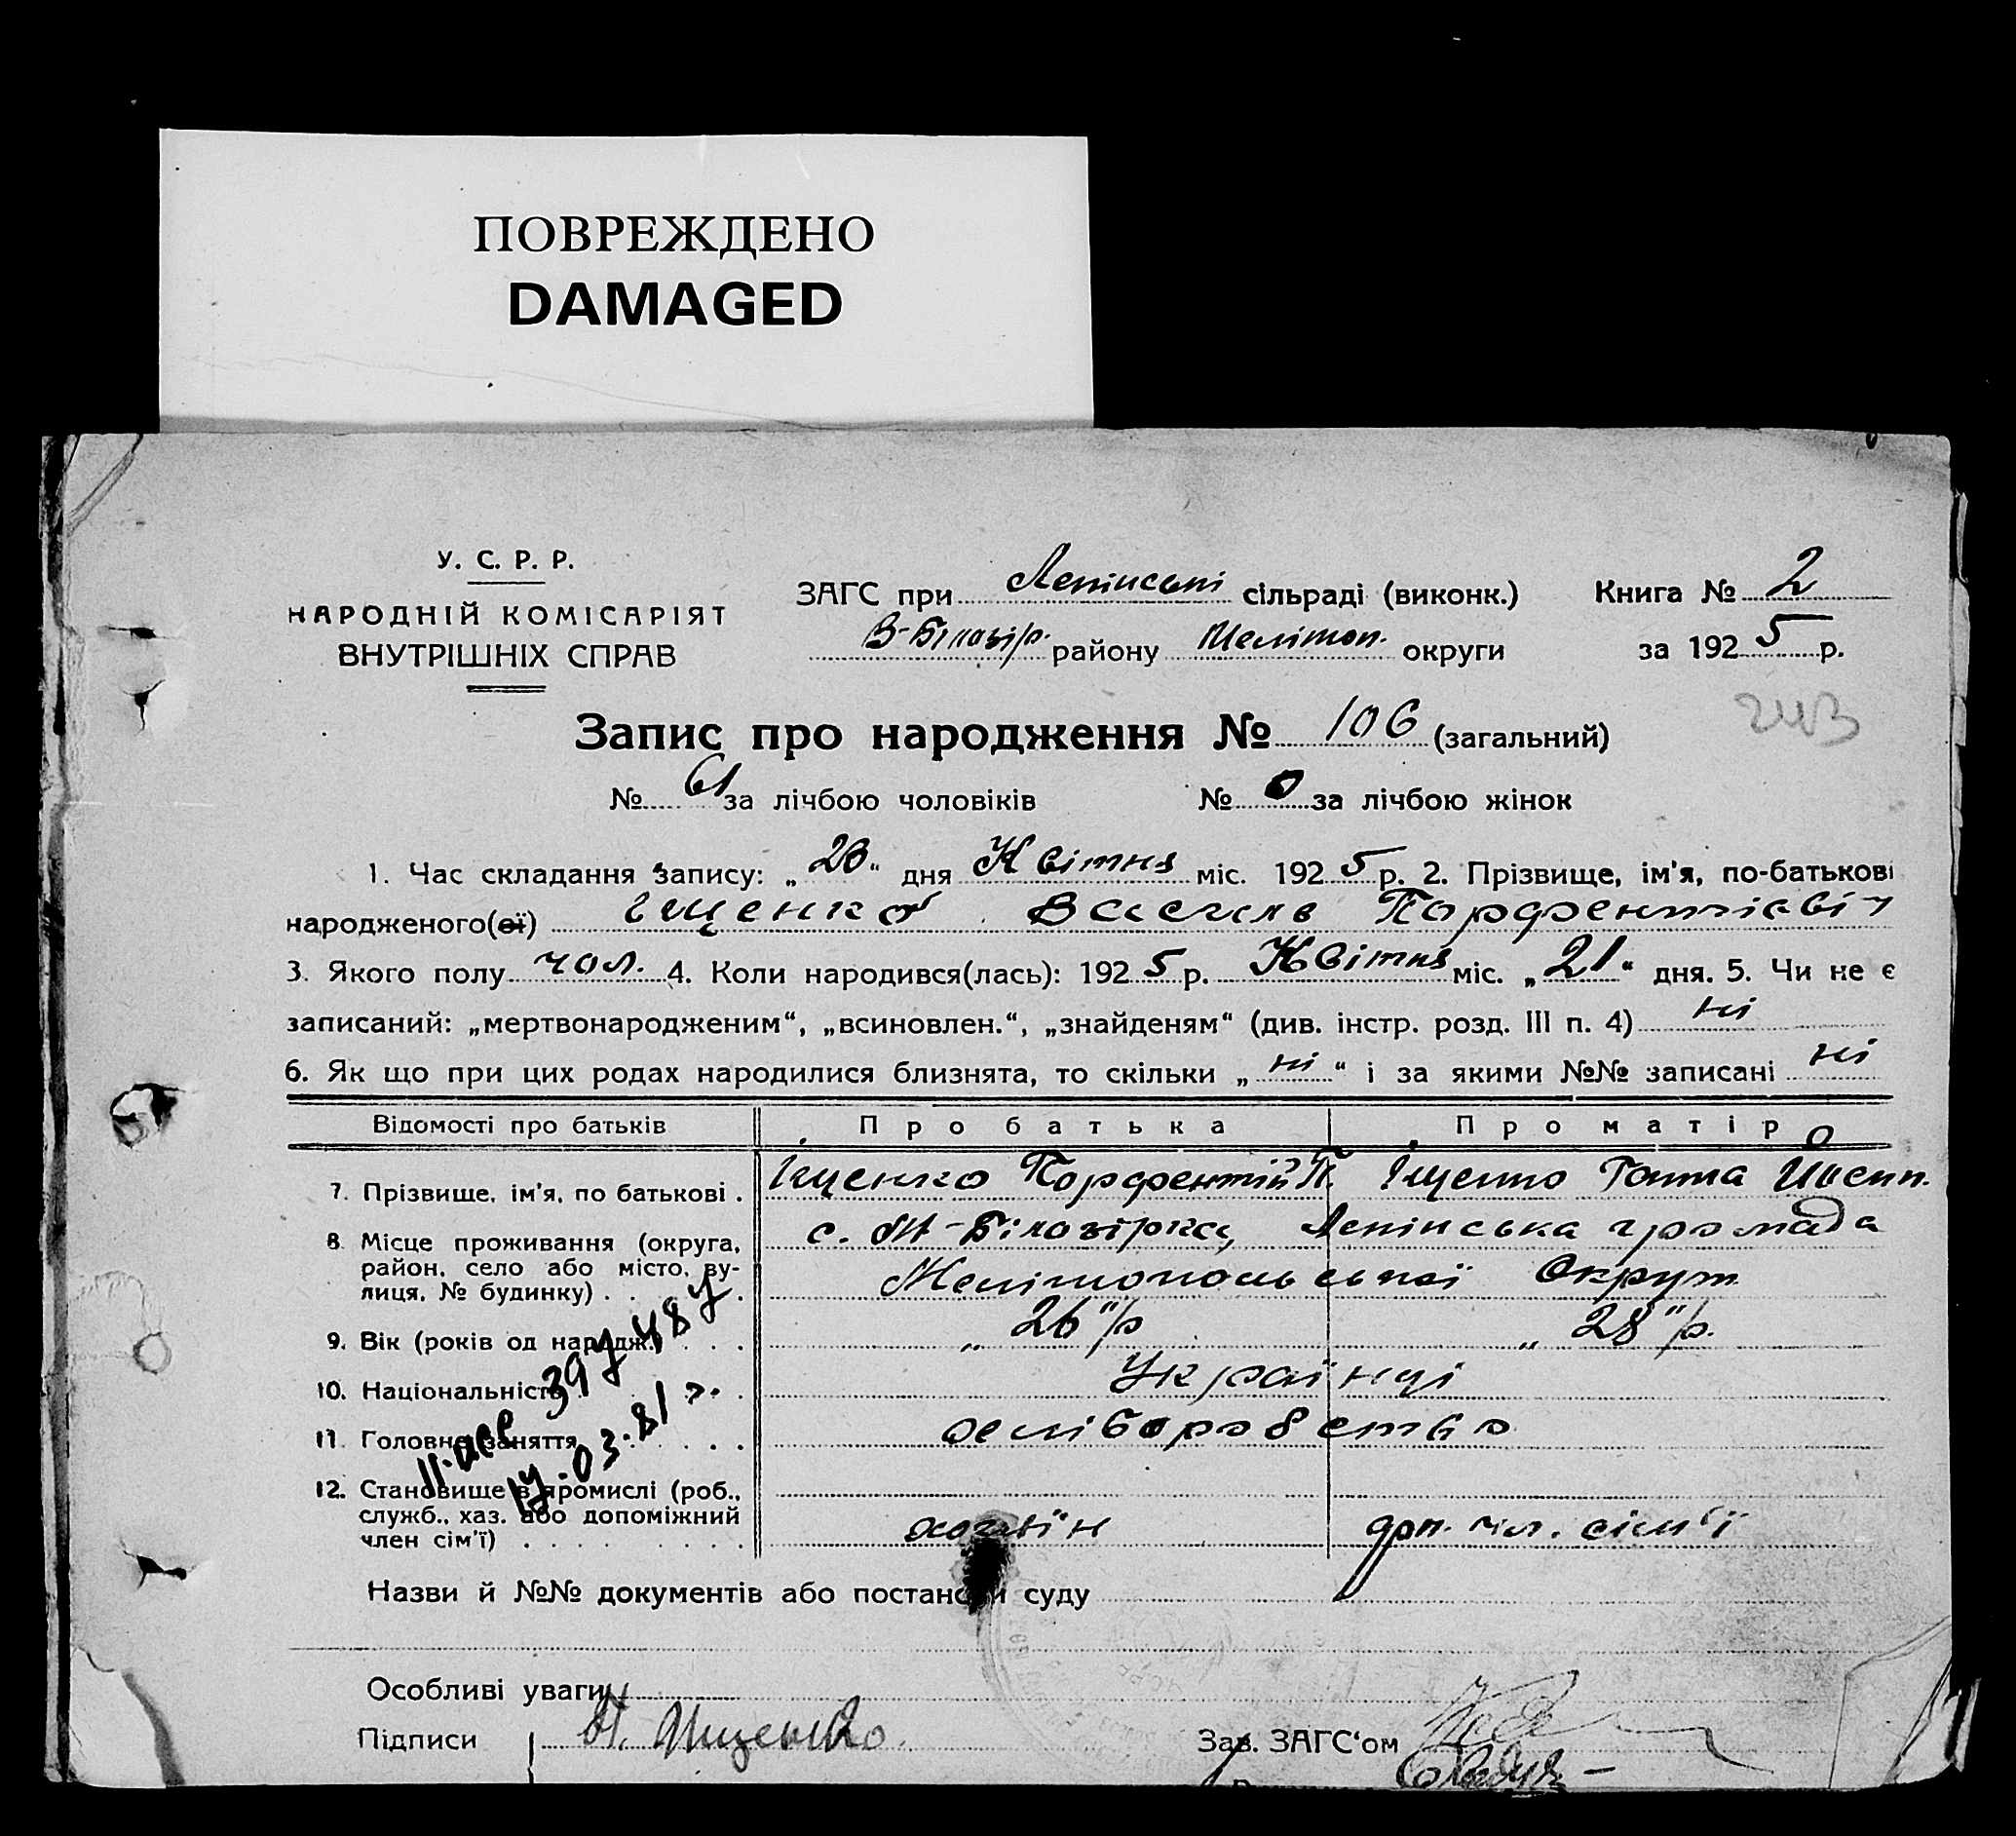 ПОВРЕЖДЕНО
DAMAGED
У. С. Р. Р.
НАРОДНІЙ КОМІСАРІЯТ
ВНУТРІШНІХ СПРАВ
ЗАГС при Ленінські сільраді (виконк.)
В-Білозір. району Мелітоп. округи
Книга № 2
за 1925 р.
Запис про народження № 106 (загальний)
243
№ 61 за лічбою чоловіків № 0 за лічбою жінок
1. Час складання запису: „ 28 “ дня Квітня міс. 1925 р. 2. Прізвище, ім'я, по-батькові
народженого(ої) Іщенко Василь Парфентієвіч
3. Якого полу чол. 4. Коли народився(лась): 1925 р. Квітня міс. „ 21 “ дня. 5. Чи не є
записаний: „мертвонародженим“, „всиновлен.“, „знайденям“ (див. інстр. розд. III п. 4) ні
6. Як що при цих родах народилися близнята, то скільки „ ні “ і за якими №№ записані ні
Відомості про батьків Про батька Про матір
7. Прізвище, ім'я, по батькові . Іщенко Порфентій П. Іщенко Ганна
8. Місце проживання (округа, район, село або місто, вулиця, № будинку) . . . . с. М-Білозірка, Ленінська громада
Мелітопольської Округи
9. Вік (років од народж.) . . . „ 26 "/р „ 28 "/р.
10. Національність . . . Українці
11. Головне заняття . . . . . хліборобство
12. Становище в промислі (роб., служб., хаз. або допоміжний член сім'ї) . . . . . . хазяїн доп. чл. сім'ї
39 У 48
03.81
Назви й №№ документів або постанови суду
Особливі уваги
Підписи П. Ищенко. Зав. ЗАГС'ом